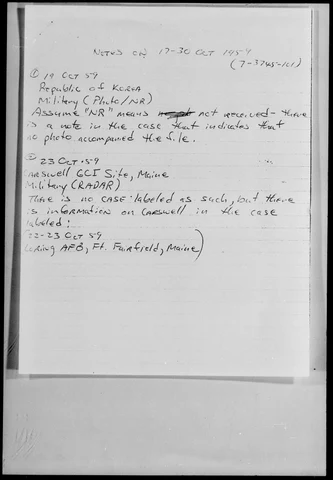 NOTES ON 17-30 OCT 1959
(7-3745-101)
① 19 OCT 59
Republic of KOREA
Military (Photo/NR)
Assume "NR" means not received - there
is a note in the case that indicates that
no photo accompanied the file.
② 23 Oct 59
CARSWELL GCI Site, Maine
Military (RADAR)
There is no CASE labeled as such, but there
is information on CARSWELL in the case
labeled:
22-23 Oct 59
Loring AFB, Ft. Fairfield, Maine)